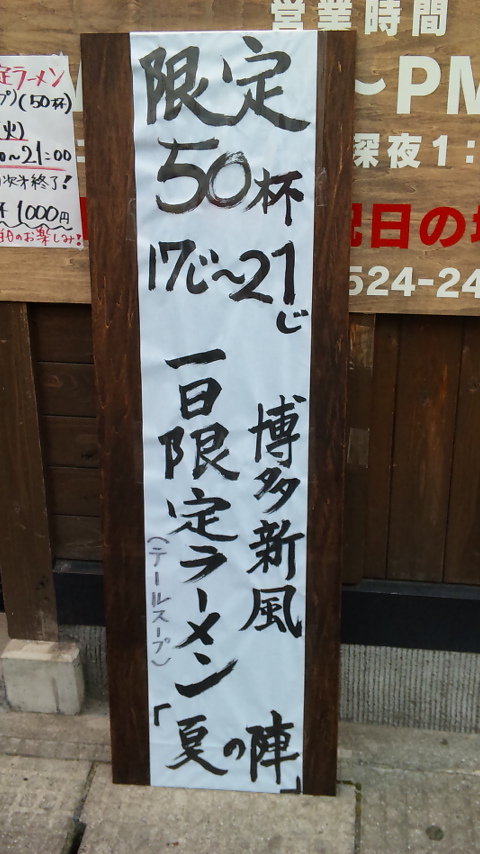 限定
50杯
17じ〜21じ
博多新風
一日限定ラーメン
(テールスープ)
「夏の陣」
営業時間
〜PM
深夜1:
祝日の
524-24
定ラーメン
プ)(50杯)
(火)
0〜21:00
次才終了!
1000円
のお楽しみ!